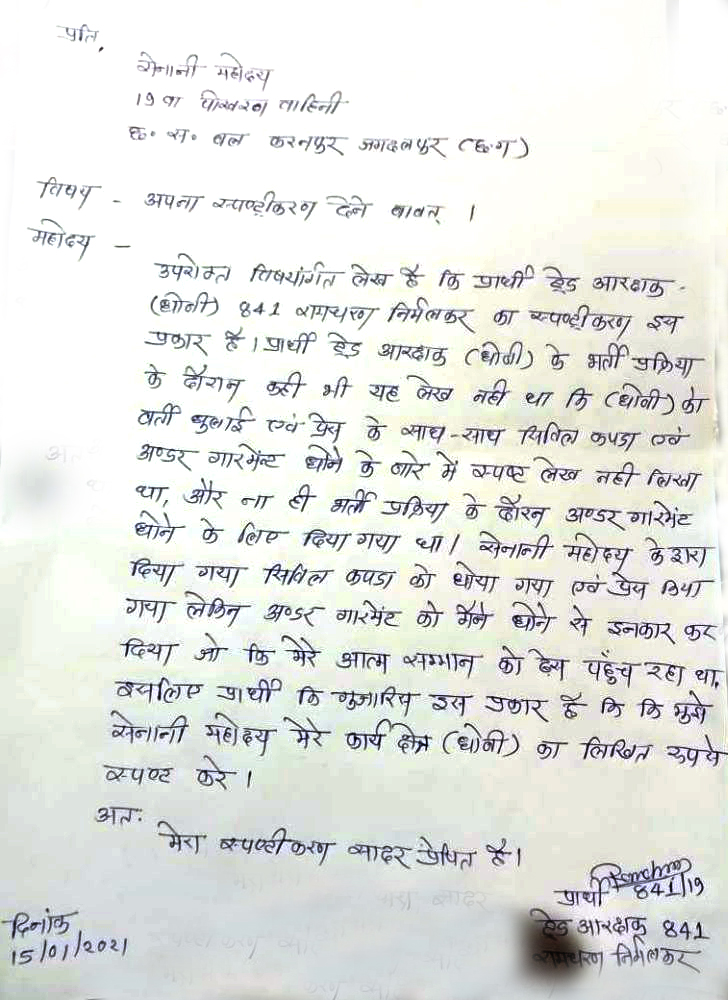 प्रति,
सेनानी महोदय
19 वी पोखरण वाहिनी
छ. स. बल करनपुर जगदलपुर (छ.ग)
विषय - अपना स्पष्टीकरण देने बाबत् ।
महोदय -
उपरोक्त विषयांर्गत लेख है कि प्रार्थी ट्रेड आरक्षक -
(धोबी) 841 रामचरण निर्मलकर का स्पष्टीकरण इस
प्रकार है। प्रार्थी ट्रेड आरक्षक (धोबी) के भर्ती प्रक्रिया
के दौरान कही भी यह लेख नही था कि (धोबी) का
वर्दी धुलाई एवं प्रेस के साथ-साथ सिविल कपडा एवं
अण्डर गारमेन्ट धोने के बारे में स्पष्ट लेख नही लिखा
था, और ना ही भर्ती प्रक्रिया के दौरन अण्डर गारमेंट
धोने के लिए दिया गया था। सेनानी महोदय के द्वारा
दिया गया सिविल कपडा को धोया गया एवं प्रेस किया
गया लेकिन अण्डर गारमेंट को मैने धोने से इनकार कर
दिया जो कि मेरे आत्म सम्मान को ठेस पहुंच रहा था,
इसलिए प्रार्थी कि गुजारिस इस प्रकार है कि कि मुझे
सेनानी महोदय मेरे कार्य क्षेत्र (धोबी) का लिखित रुपसे
स्पष्ट करे ।
अतः
मेरा स्पष्टीकरण सादर प्रेषित है।
प्रार्थी 841/19
दिनांक
ट्रेड आरक्षक 841
15/01/2021
रामचरण निर्मलकर